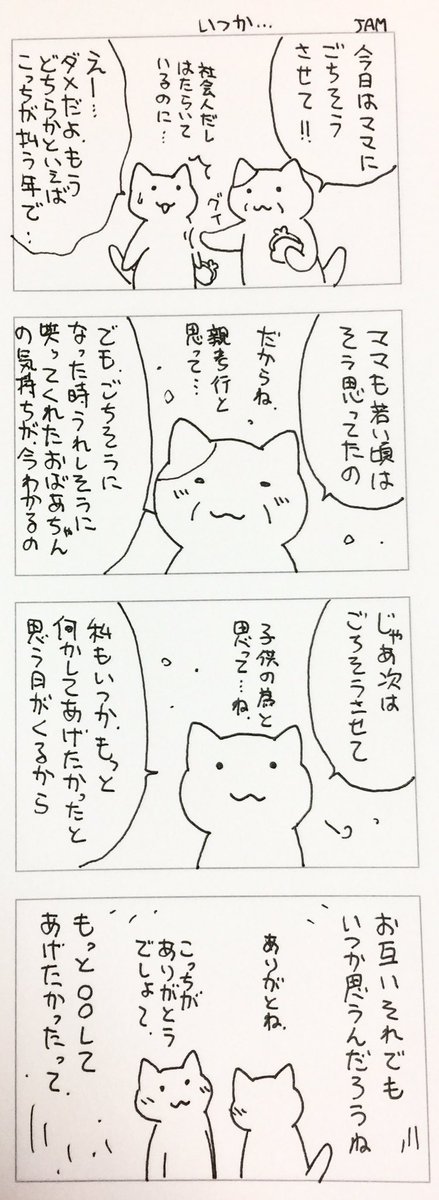 いつか…
JAM
今日はママに
ごちそう
させて!!
社会人だし
はたらいて
いるのに…
グイ
えー…
ダメだよ、もう
どちらかといえば
こっちが払う年で…
ママも若い頃は
そう思ってたの
だからね、
親孝行と
思って…
でも、ごちそうに
なった時うれしそうに
笑ってくれたおばあちゃん
の気持ちが、今わかるの
じゃあ次は
ごちそうさせて
子供の為と
思って…ね、
私もいつか、もっと
何かしてあげたかったと
思う日がくるから
お互いそれでも
いつか思うんだろうね
ありがとね、
こっちが
ありがとう
でしょて、
もっと〇〇して
あげたかったって、